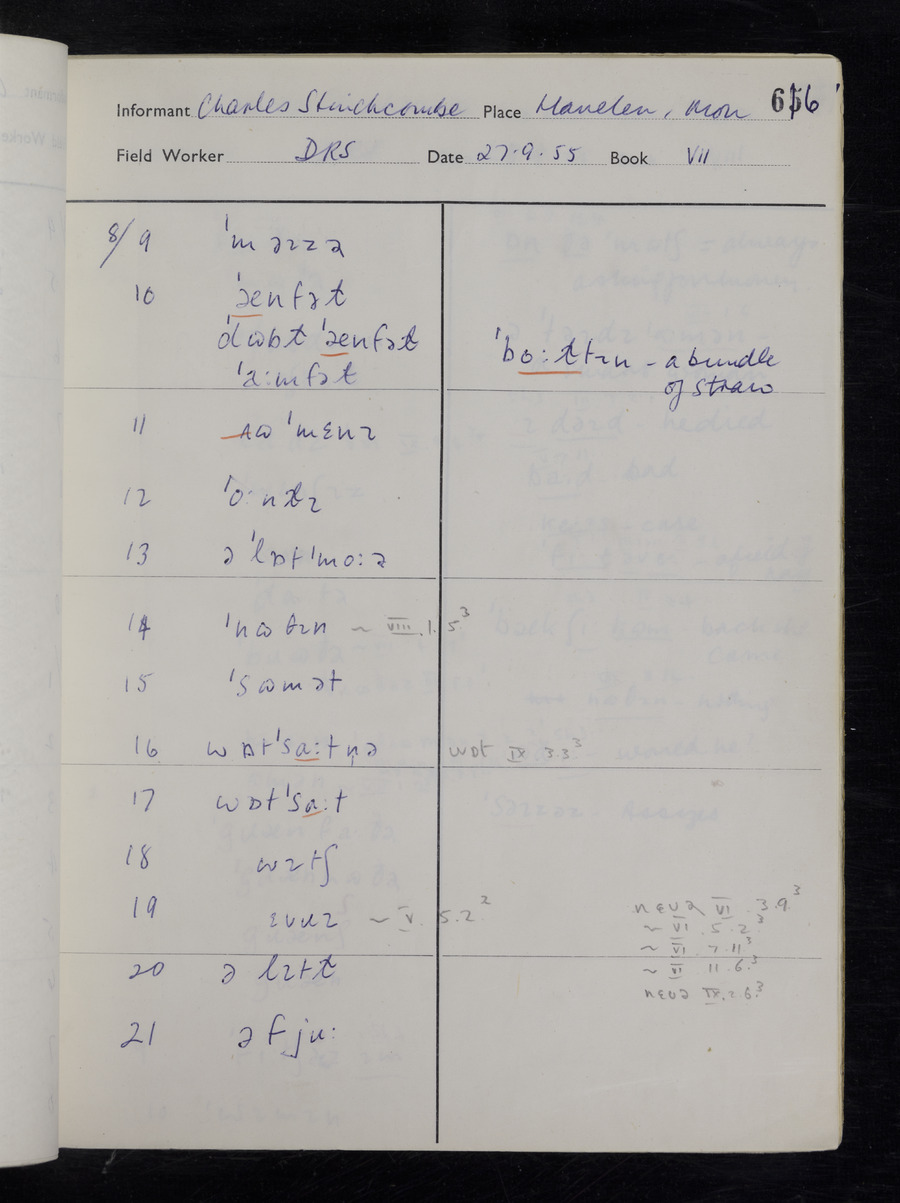 Informant Charles Stinchcombe Place Llanellen, Mon 616
Field Worker DRS Date 27.9.55 Book VII
8/9 ˈməɪzə
10 ˈænfət
dɷbt ˈænfət
ˈaːmfət
ˈboːttɪn - a bundle
of straw
11 ʌɷ ˈmɛnɪ
12 ˈoːntɪ
13 ə ˈlɒt ˈmoːə
14 ˈnɷθɪn ~ VIII.1.5³
15 ˈsɷmət
16 wɒtˈsaːtnə wɒt IX 3.3³
17 wɒtˈsaːt
18 wɪtʃ
19 ɛvɹɪ ~ V.5.2²
nɛvə VI.3.9³
~ VI.5.2³
~ VI.7.11³
20 ə lɪtt
~ VI 11.6³
nɛvə IX.2.6³
21 ə fjuː